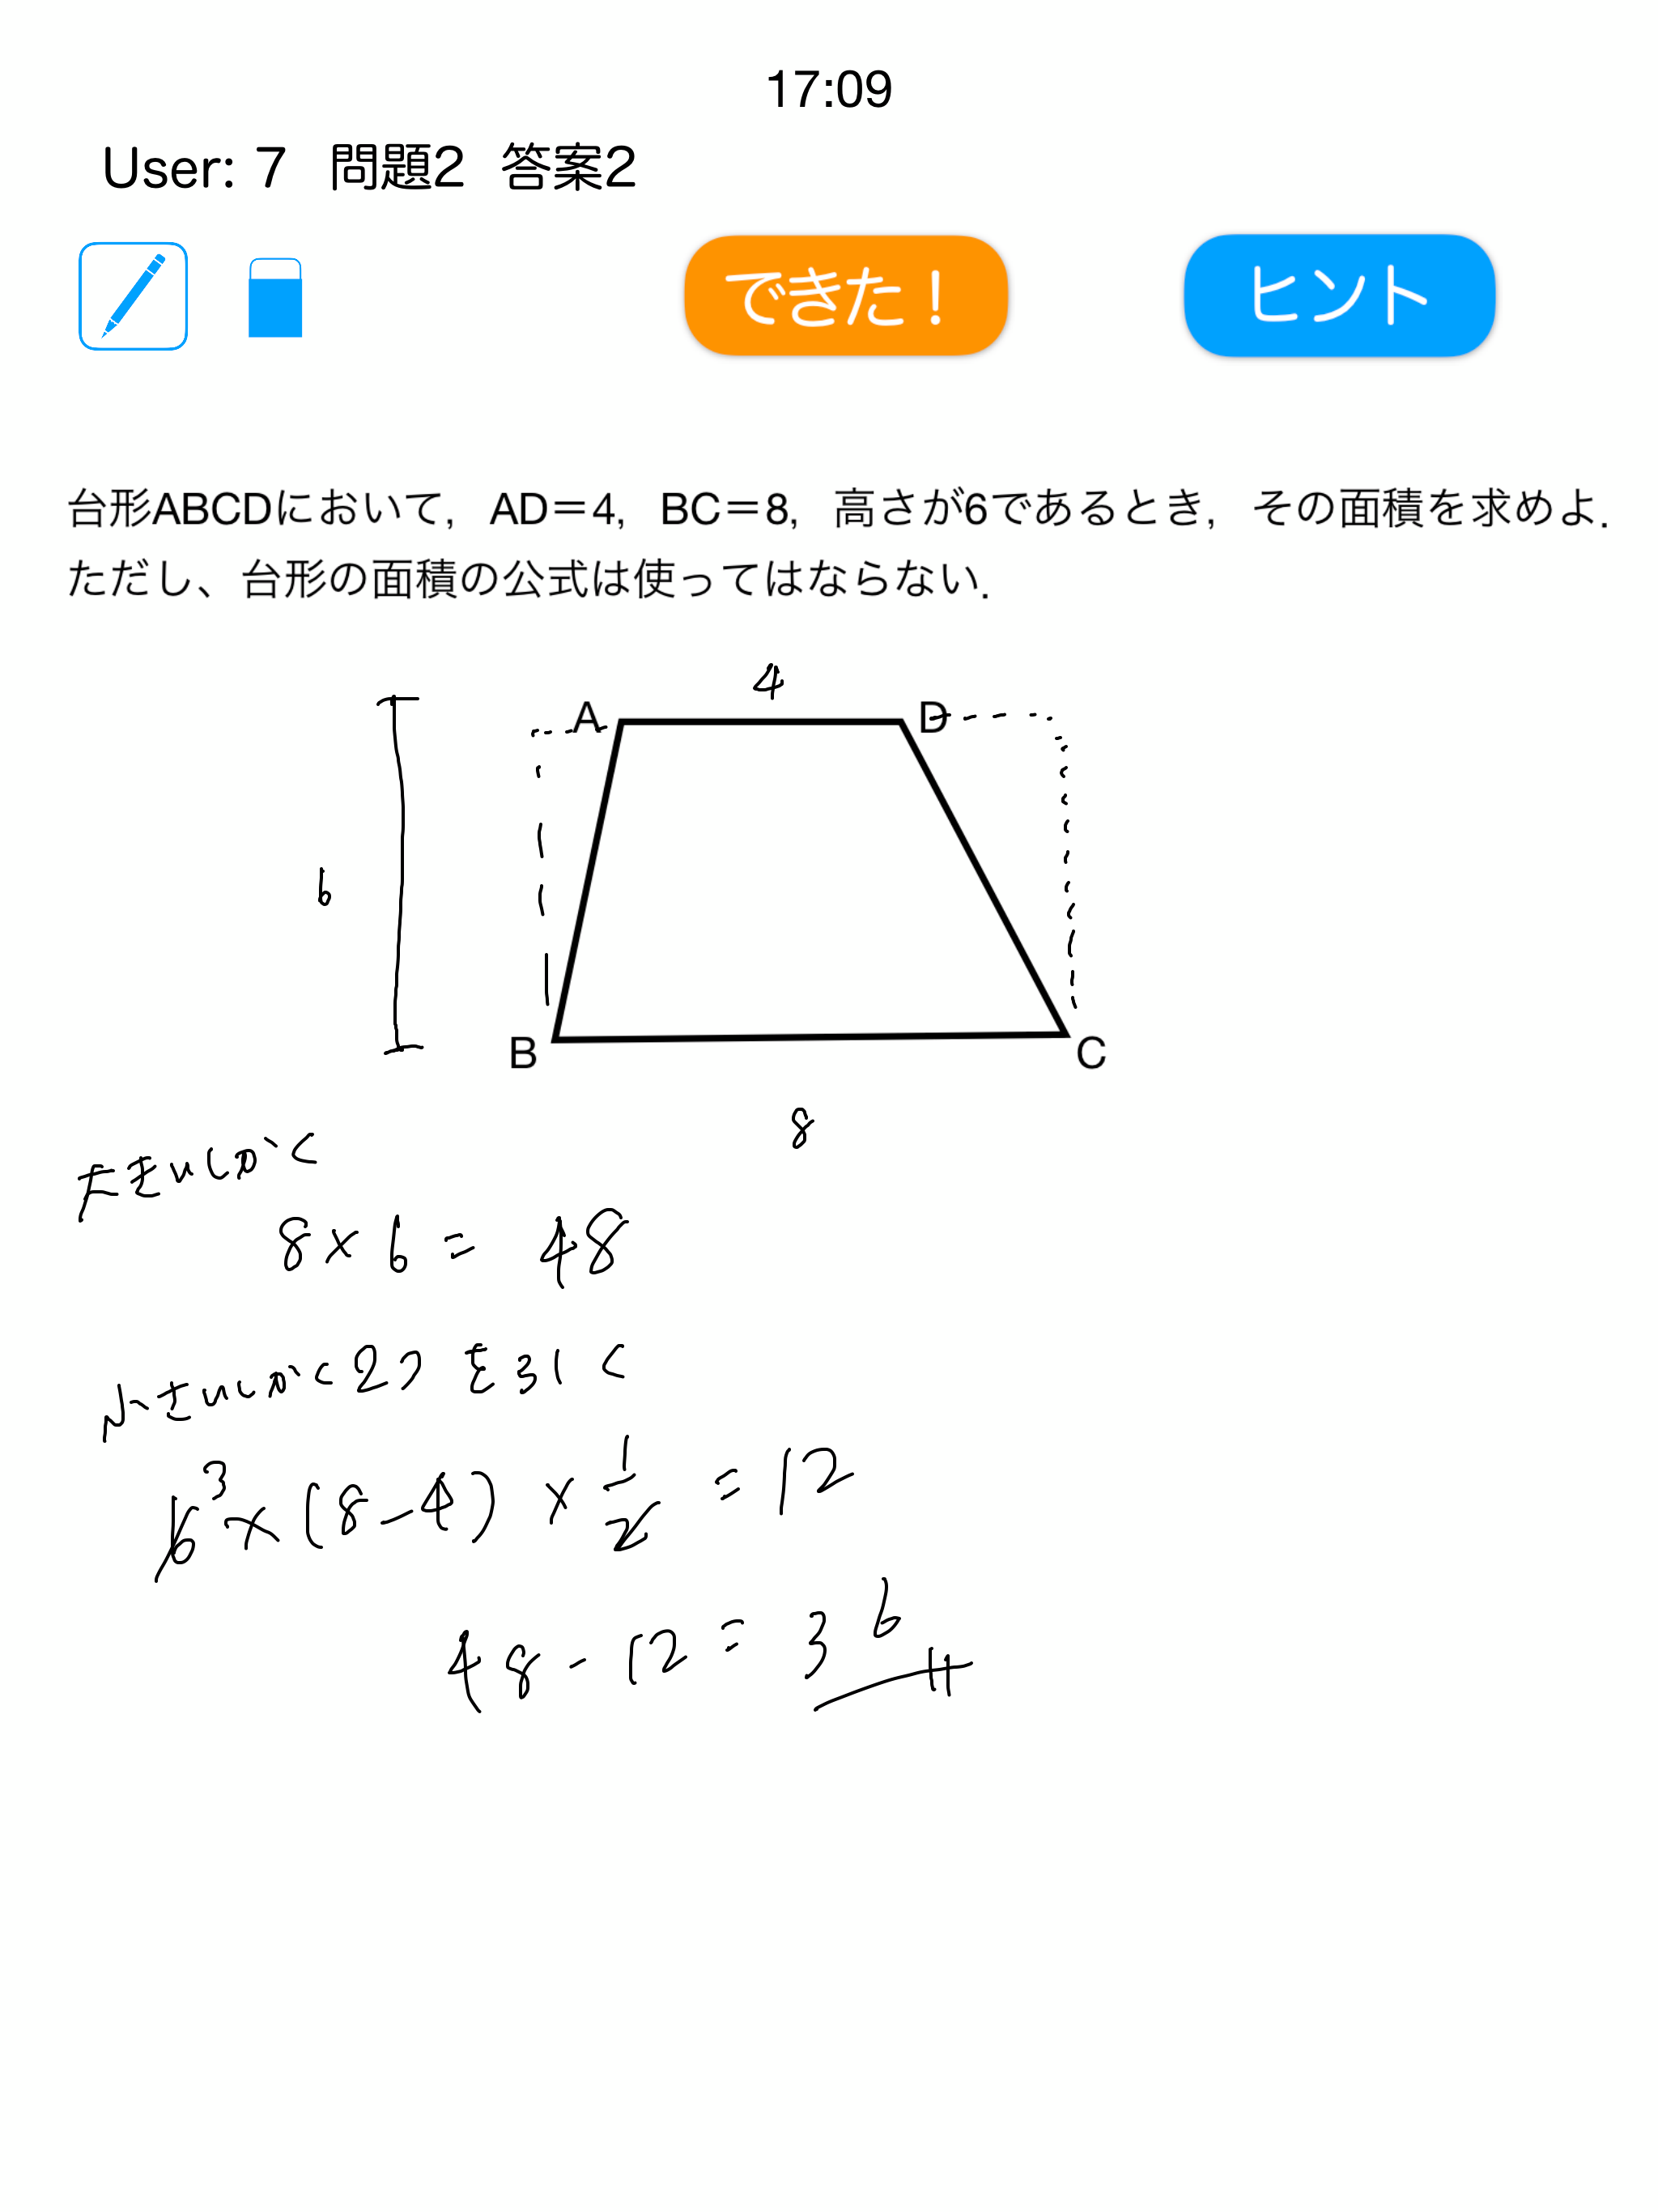 17:09
User: 7 問題2 答案2
できた！
ヒント
台形ABCDにおいて，AD＝4，BC＝8，高さが6であるとき，その面積を求めよ．
ただし、台形の面積の公式は使ってはならない．
4
A D
6
B C
8
大きいしかく
8×6= 48
小さいしかく2つを引く
6 3×(8-4)×1/2=12
48-12=36